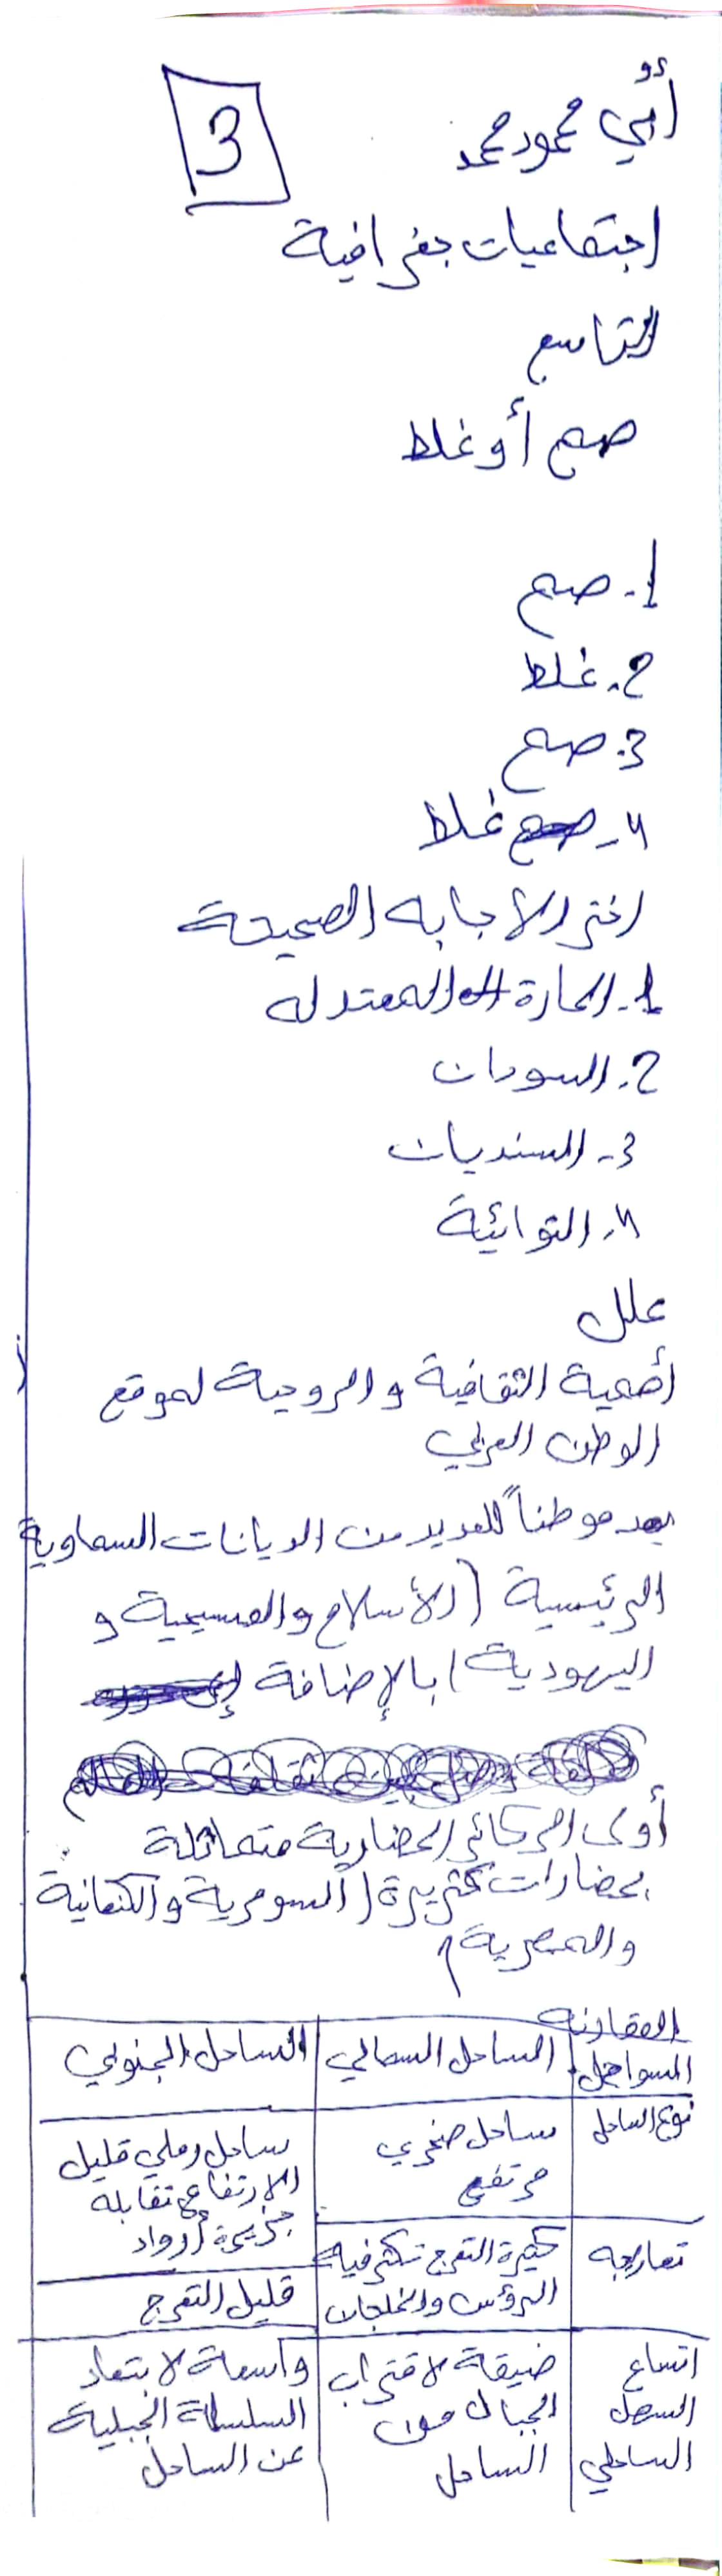 أبي محمود محمد
3
اجتماعيات جغرافية
التاسع
صح أو غلط
1. صح
2. غلط
3. صح
4- غلط
اختر الاجابه الصحيحة
1. الحارة المعتدله
2. السودان
3- السنديان
4. التوائية
علل
أهمية الثقافية والروحية لموقع
الوطن العربي
يعد موطناً للعديد من الديانات السماوية
الرئيسية (الأسلام والمسيحية و
اليهودية) بالإضافة
أولى المركائز الحضارية متماثلة
بحضارات كثيرة (السومرية والكنعانية
والمصرية)
المقارنه
السواحل | الساحل الشمالي | الساحل الجنوبي
نوع الساحل | ساحل صخري مرتفع | ساحل رملي قليل الارتفاع تقابله جزيرة أرواد
تعاريجه | كثيرة التعرج تكثر فيه الرؤس والخلجان | قليل التعرج
اتساع السهل الساحلي | ضيقة لاقتراب الجبال من الساحل | واسعة لابتعاد السلسلة الجبلية عن الساحل